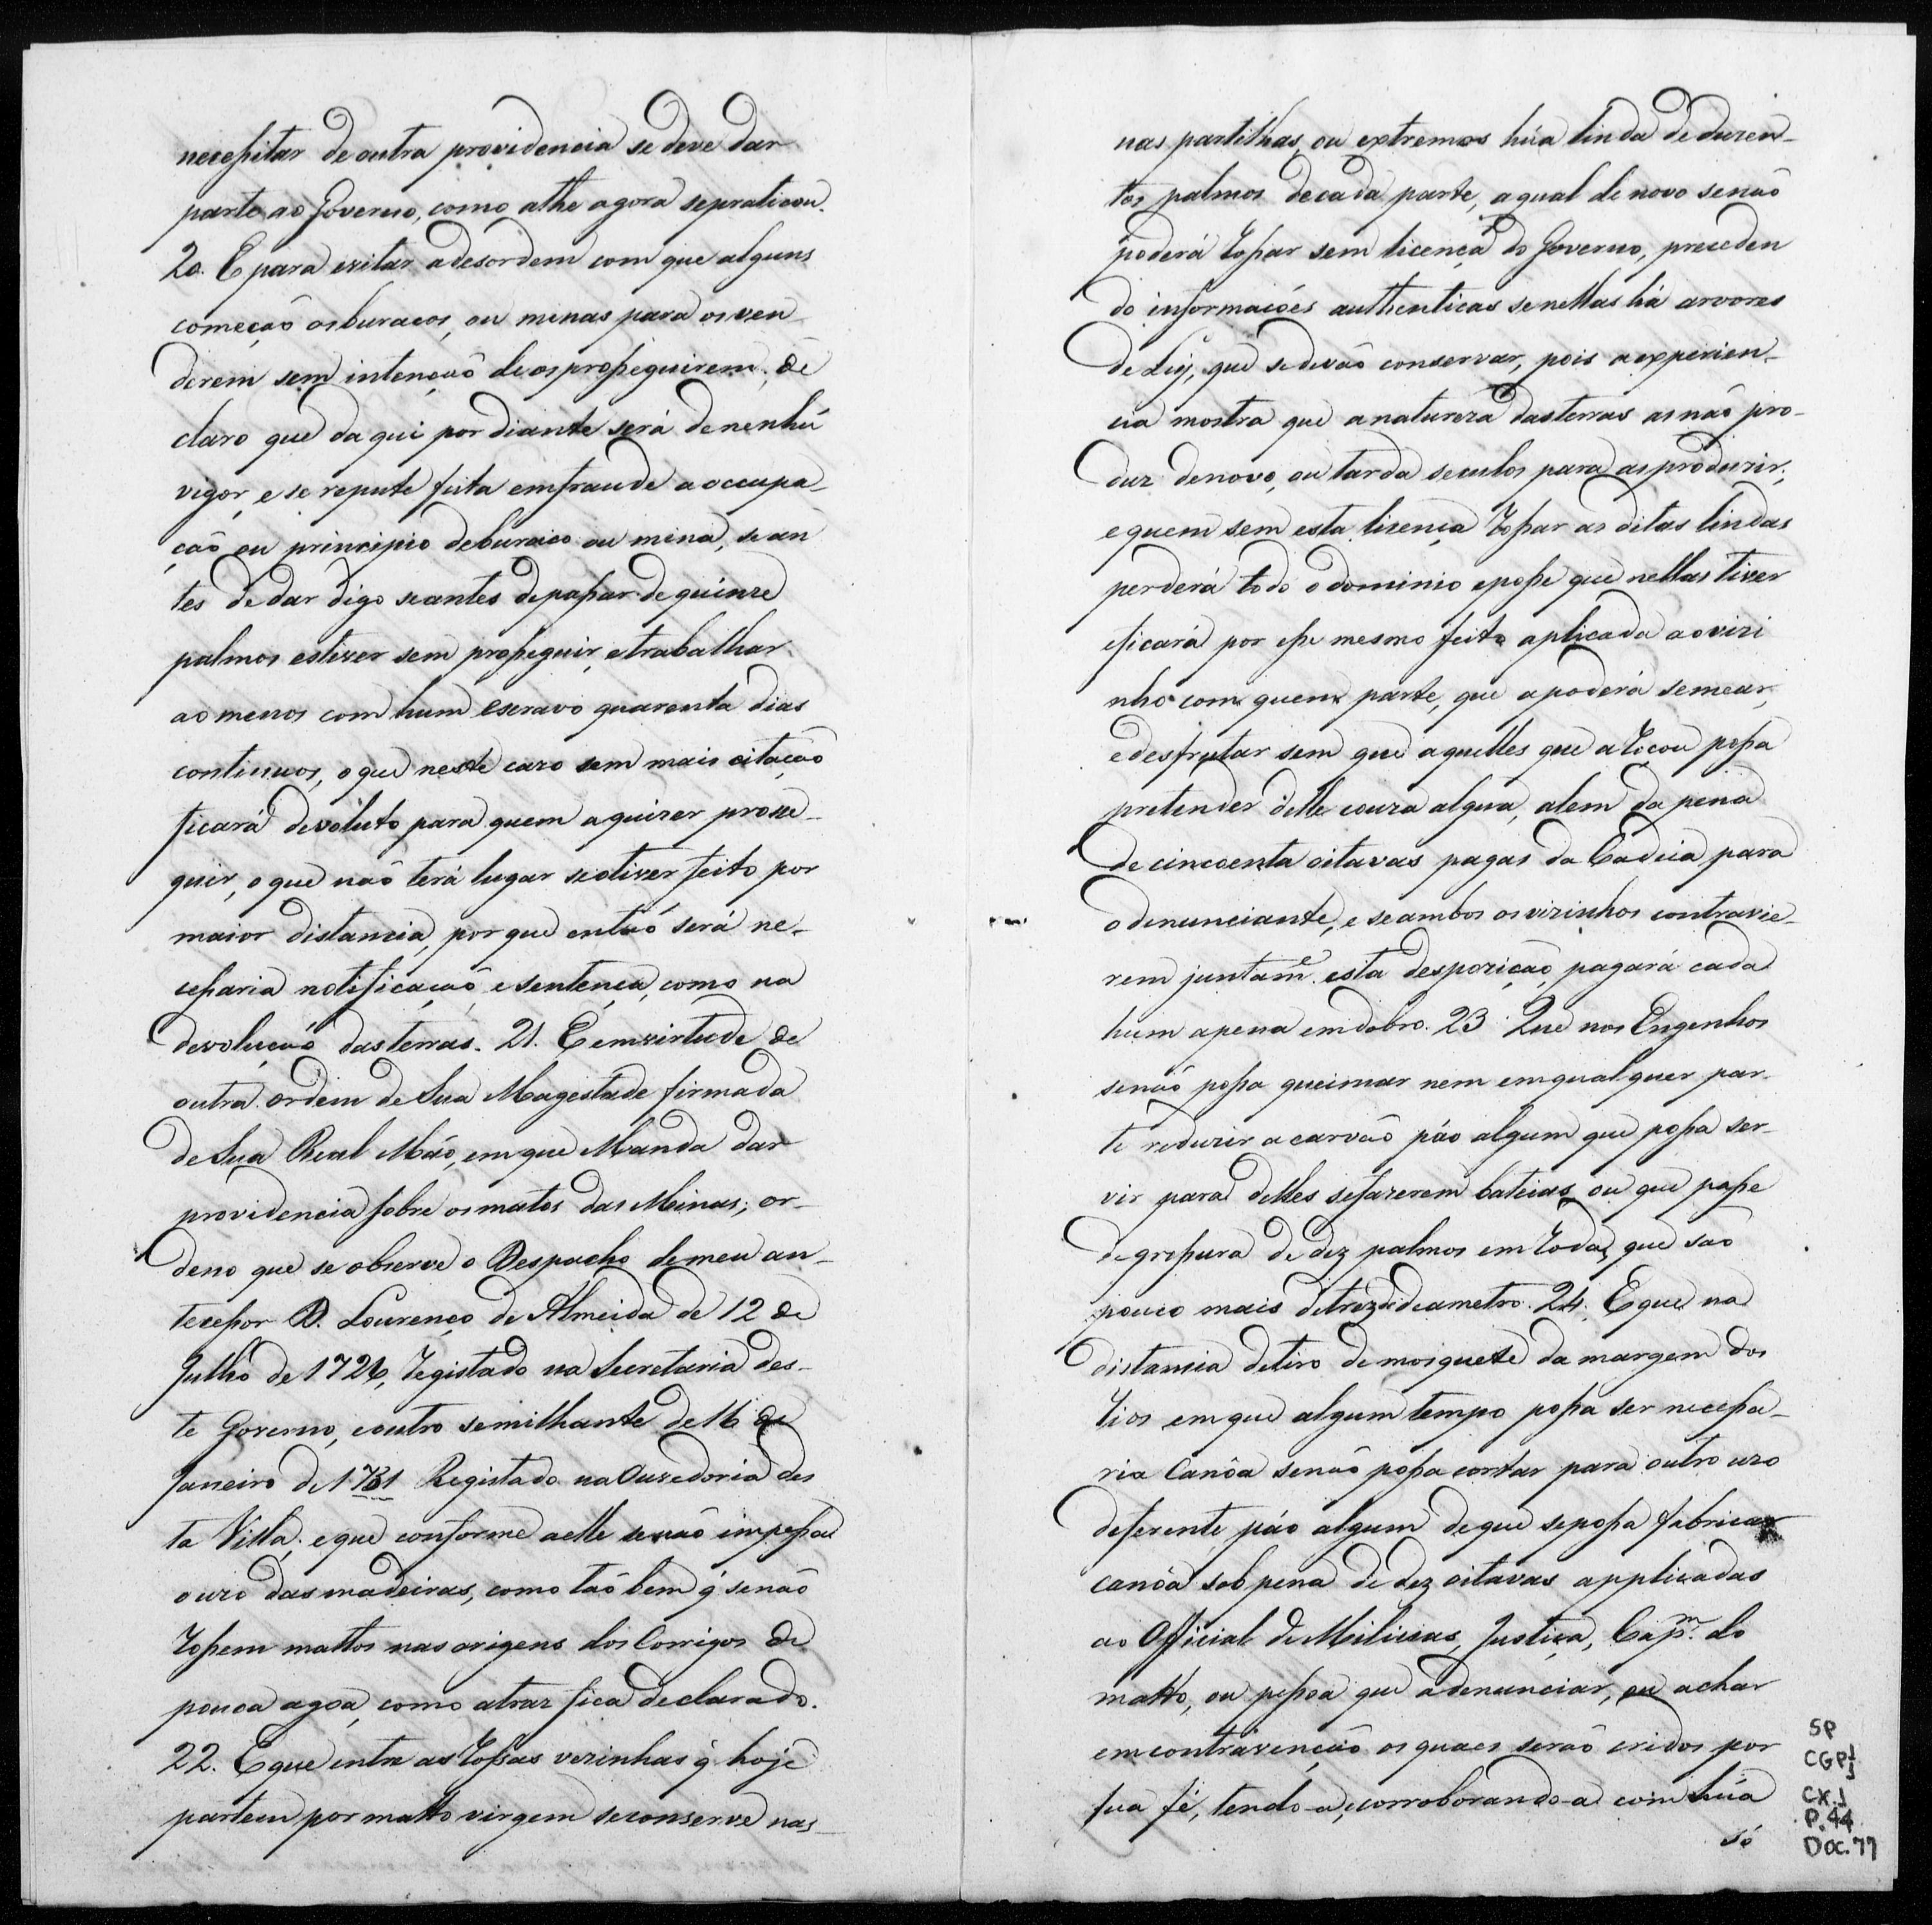 necessitar de outra providencia se deve dar
parte ao Governo, como athe agora sepraticou.
20. E para evitar adesordem com que alguns
começaõ osburacos, ou minas para os ven
derem sem intençaõ de os prosseguirem, de
claro que daqui por diante será denenhũ
vigor, e se repute feita emfraude a occupa-
çaõ ou principio deburaco ou mina, se an
tes de dar digo seantes depassar de quinze
palmos estiver sem prosseguir, etrabalhar
ao menos com hum escravo quarenta dias
continuos, oque neste cazo sem mais citaçaõ
ficará devoluto para quem aquizer prose-
guir, o que naõ terá lugar seotiver feito por
maior distancia, porque entaõ será ne-
cessaria notificaçaõ, esentença, como na
devoluçaõ das terras. 21. E emvirtude de
outra ordem de Sua Magestade firmada
de Sua Real Maõ, emque Manda dar
providencia sobre os matos das Minas; or-
deno que se observe o Despacho demeu an-
tecessor D. Lourenço de Almeida de 12 de
Julho de 1726, registado na Secretaria des-
te Governo, eoutro semilhante de 16 de
Janeiro de 1731 Registado na Ouvedoria des
ta Villa; eque conforme aelle senaõ impessa
ouzo das madeiras, como taõ bem q̃ senaõ
rossem mattos nas origens dos Corrigos de
pouca agoa, como atraz fica declarado.
22. E que entre as rossas vezinhas q̃ hoje
partem por matto virgem seconserve nas-
nas partilhas, ou extremos hũa linda de duzen-
tos palmos decada parte, aqual de novo senaõ
poderá rossar sem licença do Governo, preceden
do informaçóes authenticas senellas há arvores
de Ley, que sedevaõ conservar, pois aexperien-
cia mostra que anatureza dasterras as naõ pro-
duz denovo, ou tarda seculos para asproduzir;
equem sem esta licença rossar as ditas lindas
perderá todo odominio eposse que nellas tiver
eficará por esse mesmo feito aplicada aovizi
nho com quem parte, que apoderá semear,
edesfrutar sem que aquelles que a roçou possa
pretender delle couza algũa, alem da pena
de cincoenta oitavas pagas da Cadeia para
odenunciante, e seambos osvizinhos contravie-
rem juntam.e esta despoziçaõ, pagará cada
hum apena emdobro. 23 Que nos Engenhos
senaõ possa queimar nem emqualquer par
te reduzir acarvaõ páo algum que possa ser-
vir para delles sefazerem bateias, ou que passe
degrossura de dez palmos em roda, que saõ
pouco mais detrez dediametro. 24. Eque na
distancia detiro demosquete da margem dos
rios emque algum tempo possa ser necessa-
ria Canôa senaõ possa cortar para outro uzo
deferente páo algum deque sepossa fabricar
canôa sob pena de dez oitavas applicadas
ao Official de Milicias, Justiça, Cap.m do
matto, ou pessoa que adenunciar, ou achar
emcontravençaõ os quaes seraõ cridos por
sua fé, tendo-a, corroborando-a com hũa
só
SP
CGP1
CX.1
P.44
Doc.77